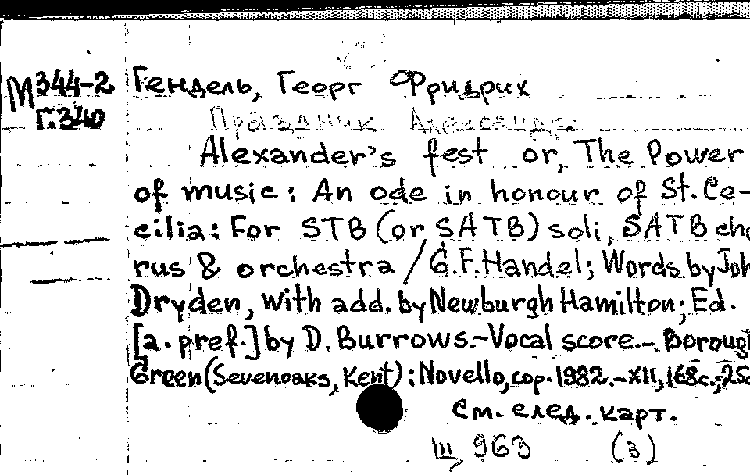 М 344-2
Г.340
Гендель, Георг Фридрих
Праздник Александра.
Alexander's fest or, The Power
of music: An ode in honour of St. Ce-
cilia: For STB (or SATB) soli, SATB cho
rus & orchestra / G.F. Handel; Words by Joh
Dryden, with add. by Newburgh Hamilton; Ed.
[a. pref.] by D. Burrows.-Vocal score.-Boroug
Green (Sevenoaks, Kent): Novello, cop. 1982.-XII, 168c.; 25
См. след. карт.
III, 963 (3)